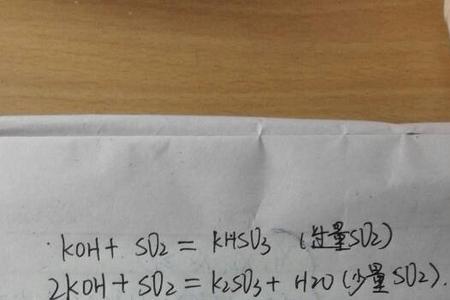 KOH + SO2 = KHSO3 (过量SO2)
2KOH + SO2 = K2SO3 + H2O (少量SO2).